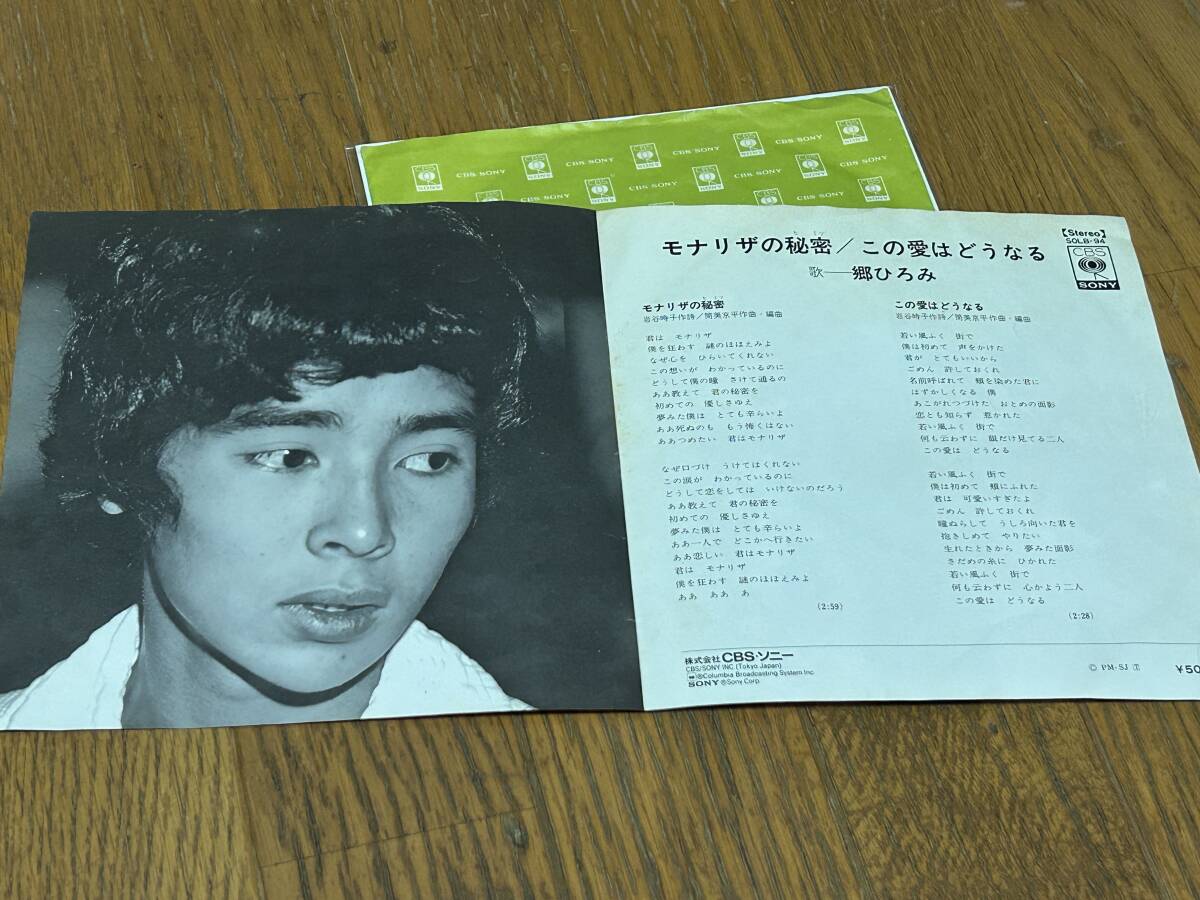 CBS SONY CBS SONY CBS SONY CBS SONY CBS SONY CBS SONY CBS SONY
CBS SONY CBS SONY CBS SONY CBS SONY CBS SONY CBS SONY
モナリザの秘密／この愛はどうなる
歌──郷ひろみ
【Stereo】
SOLB-94
CBS
SONY
モナリザの秘密
岩谷時子作詩／筒美京平作曲・編曲
君は　モナリザ
僕を狂わす　謎のほほえみよ
なぜ心を　ひらいてくれない
この想いが　わかっているのに
どうして僕の瞳　さけて通るの
ああ教えて　君の秘密を
初めての　優しさゆえ
夢みた僕は　とても辛らいよ
ああ死ぬのも　もう怖くはない
ああつめたい　君はモナリザ
なぜ口づけ　うけてはくれない
この涙が　わかっているのに
どうして恋をしては　いけないのだろう
ああ教えて　君の秘密を
初めての　優しさゆえ
夢みた僕は　とても辛らいよ
ああ一人で　どこかへ行きたい
ああ恋しい　君はモナリザ
君は　モナリザ
僕を狂わす　謎のほほえみよ
ああ　ああ　あ
(2:59)
この愛はどうなる
岩谷時子作詩／筒美京平作曲・編曲
若い風ふく　街で
僕は初めて　声をかけた
君が　とてもいいから
ごめん　許しておくれ
名前呼ばれて　頬を染めた君に
はずかしくなる　僕
あこがれつづけた　おとめの面影
恋とも知らず　惹かれた
若い風ふく　街で
何も云わずに　眼だけ見てる二人
この愛は　どうなる
若い風ふく　街で
僕は初めて　頬にふれた
君は　可愛いすぎたよ
ごめん　許しておくれ
瞳ぬらして　うしろ向いた君を
抱きしめて　やりたい
生れたときから　夢みた面影
さだめの糸に　ひかれた
若い風ふく　街で
何も云わずに　心かよう二人
この愛は　どうなる
(2:28)
株式会社CBS・ソニー
CBS/SONY INC.(Tokyo Japan)
®Columbia Broadcasting System Inc
SONY ®Sony Corp.
Ⓒ PM-SJ Ⓙ
¥50